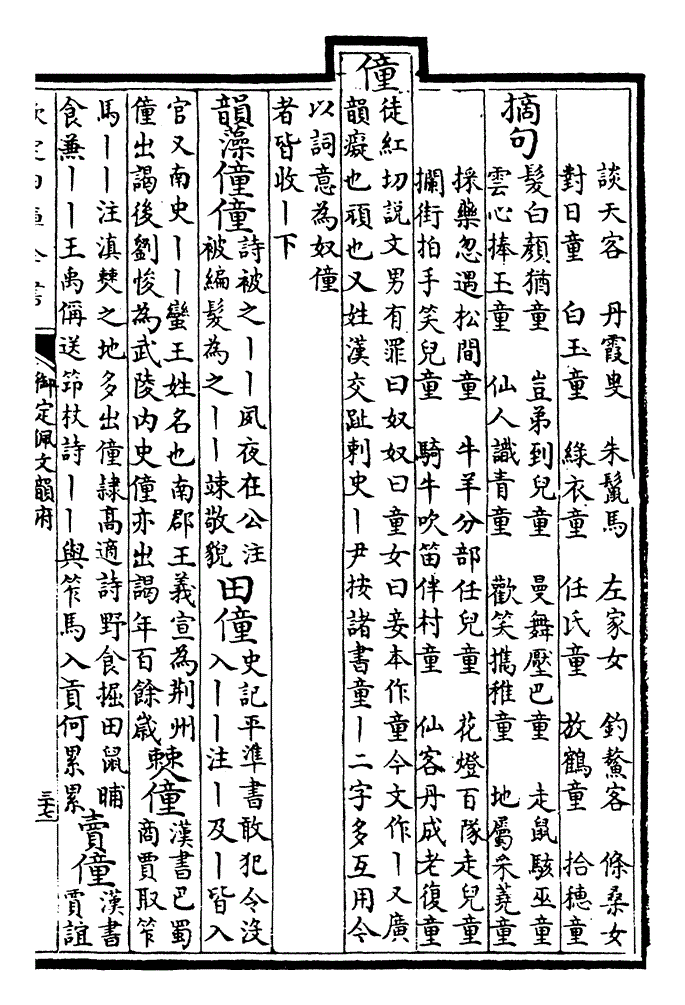 談天客 丹霞叟 朱鬣馬 左家女 釣鰲客 條桑女
對日童 白玉童 綠衣童 任氏童 放鶴童 拾穗童
摘句
髮白顏猶童 豈弟到兒童 曼舞壓巴童 走鼠駭巫童
雲心捧玉童 仙人識青童 歡笑攜稚童 地屬采蕘童
採藥忽遇松間童 牛羊分部任兒童 花燈百隊走兒童
攔街拍手笑兒童 騎牛吹笛伴村童 仙客丹成老復童
僮
徒紅切說文男有罪曰奴奴曰童女曰妾本作童今文作丨又廣
韻癡也頑也又姓漢交趾刺史丨尹按諸書童丨二字多互用今
以詞意為奴僮
者皆收丨下
韻藻
僮僮
詩被之丨丨夙夜在公注
被編髮為之丨丨竦敬貌
田僮
史記平準書敢犯令沒
入丨丨注丨及丨皆入
官又南史丨丨蠻王姓名也南郡王義宣為荆州
僮出謁後劉悛為武陵内史僮亦出謁年百餘歲
僰僮
漢書巴蜀
商賈取笮
馬丨丨注滇僰之地多出僮隸高適詩野食掘田鼠晡
食兼丨丨王禹偁送筇杖詩丨丨與笮馬入貢何累累
賣僮
漢書
賈誼
御定佩文韻府
三十七